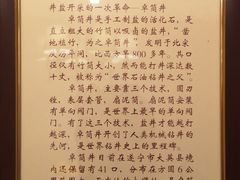 井盐开采的一次革命—卓筒井
卓筒井是手工制盐的活化石，是
直立粗大的竹筒以吸卤的盐井，“凿
地植竹，为之卓筒井”，发明于北宋
，比西方早800多年。其口
径仅有竹筒大小，然而能打井深达数
十丈，被称为“世界石油钻井之父”。
卓筒井，主要靠三个技术，圆
刃锉，表层套管，扇泥筒。扇泥筒安装
有单向阀门，是世界上最早的单向阀
门。有了这三个技术，盐井才能越打
越深。卓筒井开创了人类机械钻井的
先河，是世界钻井史上的里程碑。
卓筒井目前在遂宁市大英县境
内还保留有41口，分布在方圆